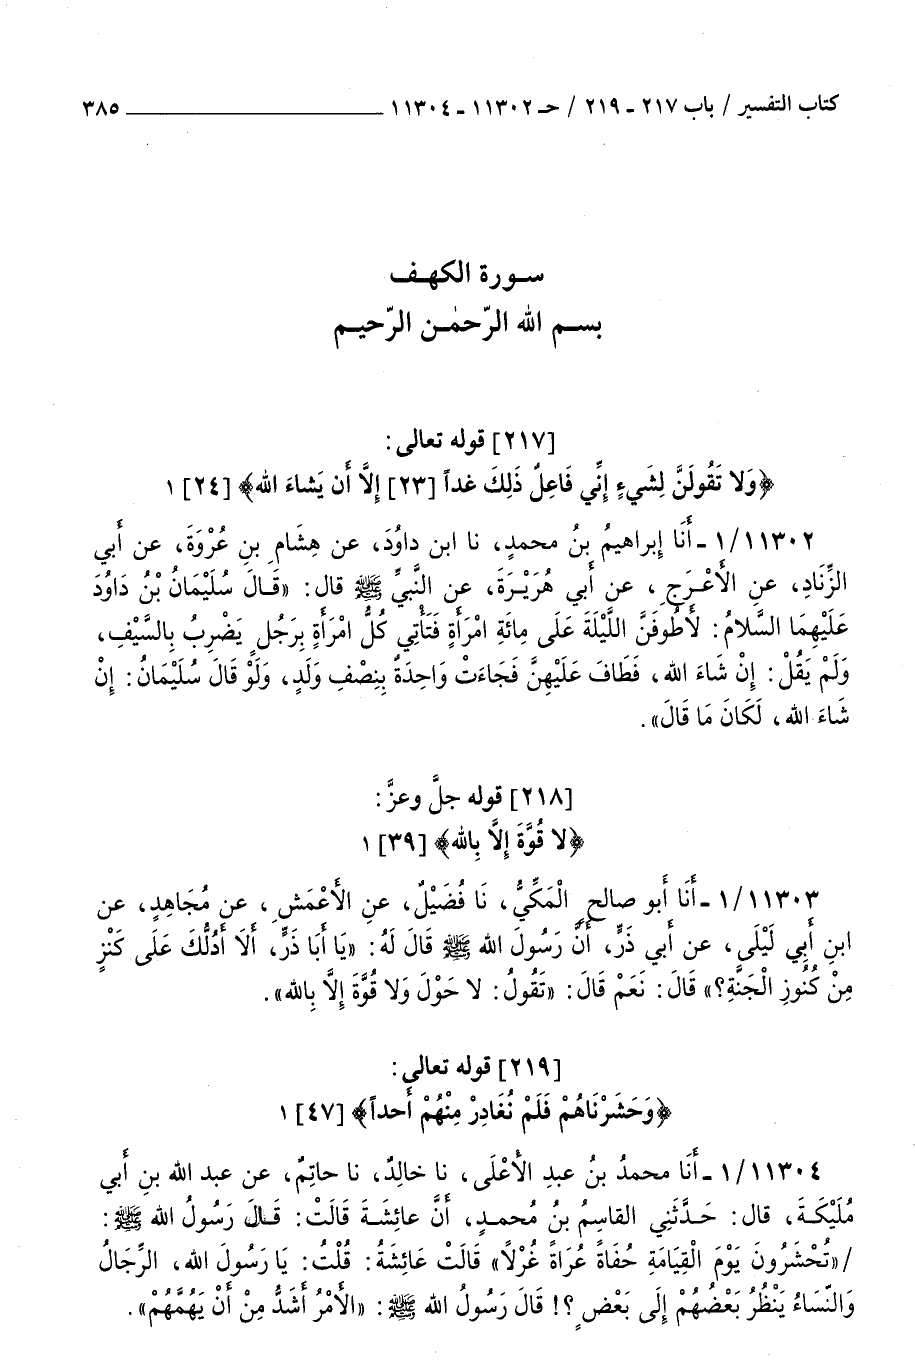 كتاب التفسير / باب ٢١٧ ـ ٢١٩ / حـ ١١٣٠٢ ـ ١١٣٠٤ ــــــــــــــــــــــــ ٣٨٥
سـورة الكهـف
بسـم الله الرّحمٰـن الرّحيـم
[٢١٧] قوله تعالى:
﴿وَلا تَقُولَنَّ لِشَيءٍ إِنِّي فَاعِلٌ ذَلِكَ غداً [٢٣] إِلَّا أَن يَشاءَ الله﴾ [٢٤] ١
١/١١٣٠٢ ـ أَنَا إبراهيمُ بنُ محمدٍ، نا ابن داوُدَ، عن هِشامِ بنِ عُرْوَةَ، عن أَبي
الزِّنَادِ، عنِ الأَعْـرَجِ، عن أَبي هُرَيْـرَةَ، عن النَّبيِّ ﷺ قال: «قَـالَ سُلَيْمَانُ بْنُ دَاوُدَ
عَلَيْهِمَا السَّلامُ: لأَطُوفَنَّ اللَّيْلَةَ عَلَى مِائَةِ امْرَأَةٍ فَتَأْتِي كُلُّ امْرَأَةٍ بِرَجُلٍ يَضْرِبُ بِالسَّيْفِ،
وَلَمْ يَقُلْ: إِنْ شَاءَ الله، فَطَافَ عَلَيْهِنَّ فَجَاءَتْ وَاحِدَةٌ بِنِصْفِ وَلَدٍ، وَلَوْ قَالَ سُلَيْمَانُ: إِنْ
شَاءَ الله، لَكَانَ مَا قَالَ».
[٢١٨] قوله جلَّ وعزَّ:
﴿لا قُوَّةَ إِلاَّ بِالله﴾ [٣٩] ١
١/١١٣٠٣ ـ أَنَا أَبو صالحٍ الْمَكِّيُّ، نَا فُضَيْلٌ، عنِ الأَعْمَشِ، عن مُجَاهِدٍ، عن
ابنِ أَبِي لَيْلَى، عن أَبي ذَرٍّ، أَنَّ رَسُولَ الله ﷺ قَالَ لَهُ: «يَا أَبَا ذَرٍّ، أَلَا أَدُلُّكَ عَلَى كَنْزٍ
مِنْ كُنُوزِ الْجَنَّةِ؟» قَالَ: نَعَمْ قَالَ: «تَقُولُ: لا حَوْلَ وَلا قُوَّةَ إِلاَّ بِالله».
[٢١٩] قوله تعالى:
﴿وَحَشَرْنَاهُمْ فَلَمْ نُغَادِرْ مِنْهُمْ أَحداً﴾ [٤٧] ١
١/١١٣٠٤ ـ أَنَا محمدُ بنُ عبدِ الأَعْلَى، نا خالِدٌ، نا حاتِمٌ، عن عبد الله بنِ أَبي
مُلَيْكَـةَ، قال: حَـدَّثَنِي القاسِمُ بنُ مُحمـدٍ، أَنَّ عائِشَـةَ قَالَتْ: قَـالَ رَسُولُ الله ﷺ:
/«تُحْشَرُونَ يَوْمَ الْقِيَامَةِ حُفَاةً عُرَاةً غُرْلاً» قَالَتْ عَائِشَةُ: قُلْتُ: يَا رَسُولَ الله، الرِّجَالُ
وَالنِّسَاءُ يَنْظُرُ بَعْضُهُمْ إِلَى بَعْضٍ؟! قَالَ رَسُولُ الله ﷺ: «الأَمْرُ أَشَدُّ مِنْ أَنْ يَهُمَّهُمْ».